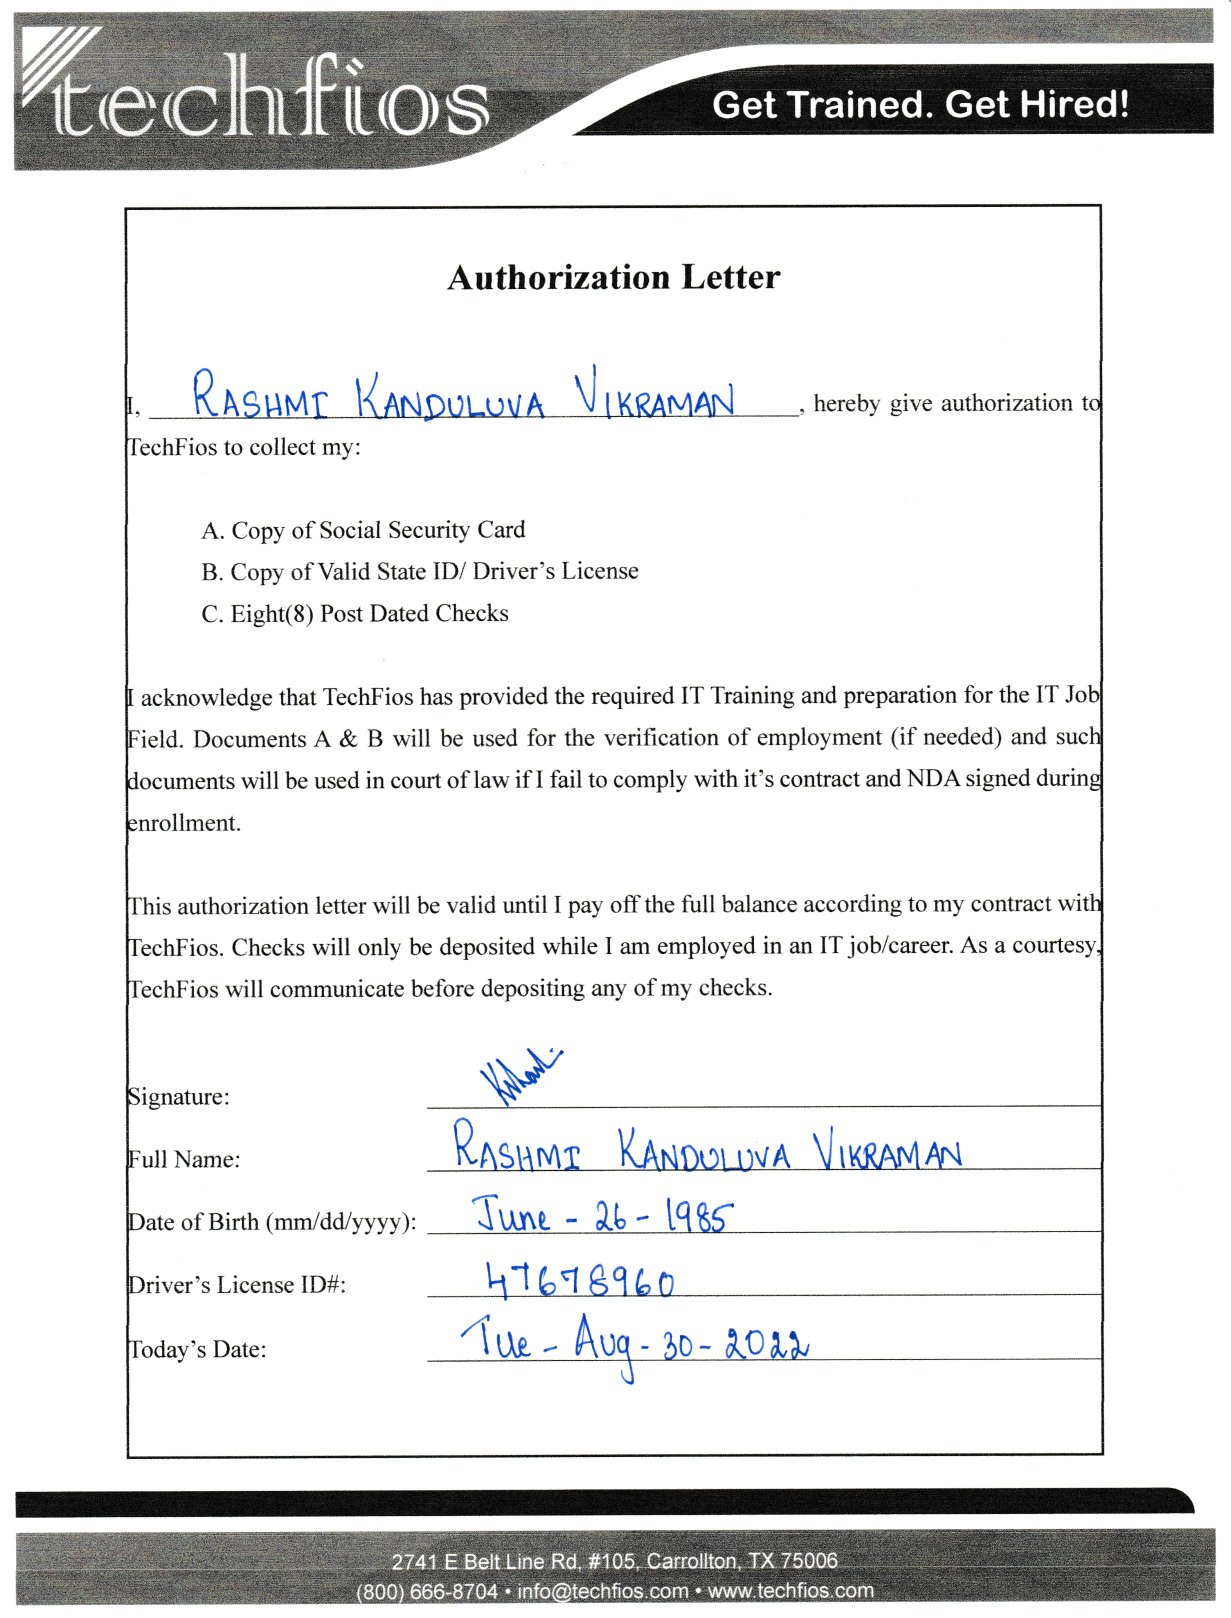 techfios
Get Trained. Get Hired!
Authorization Letter
I, RASHMI KANDULUVA VIKRAMAN, hereby give authorization to
TechFios to collect my:
A. Copy of Social Security Card
B. Copy of Valid State ID/ Driver's License
C. Eight(8) Post Dated Checks
I acknowledge that TechFios has provided the required IT Training and preparation for the IT Job
Field. Documents A & B will be used for the verification of employment (if needed) and such
documents will be used in court of law if I fail to comply with it's contract and NDA signed during
enrollment.
This authorization letter will be valid until I pay off the full balance according to my contract with
TechFios. Checks will only be deposited while I am employed in an IT job/career. As a courtesy,
TechFios will communicate before depositing any of my checks.
Signature:
Full Name: RASHMI KANDULUVA VIKRAMAN
Date of Birth (mm/dd/yyyy): June - 26 - 1985
Driver's License ID#: 47678960
Today's Date: Tue - Aug - 30 - 2022
2741 E Belt Line Rd, #105, Carrollton, TX 75006
(800) 666-8704 • info@techfios.com • www.techfios.com